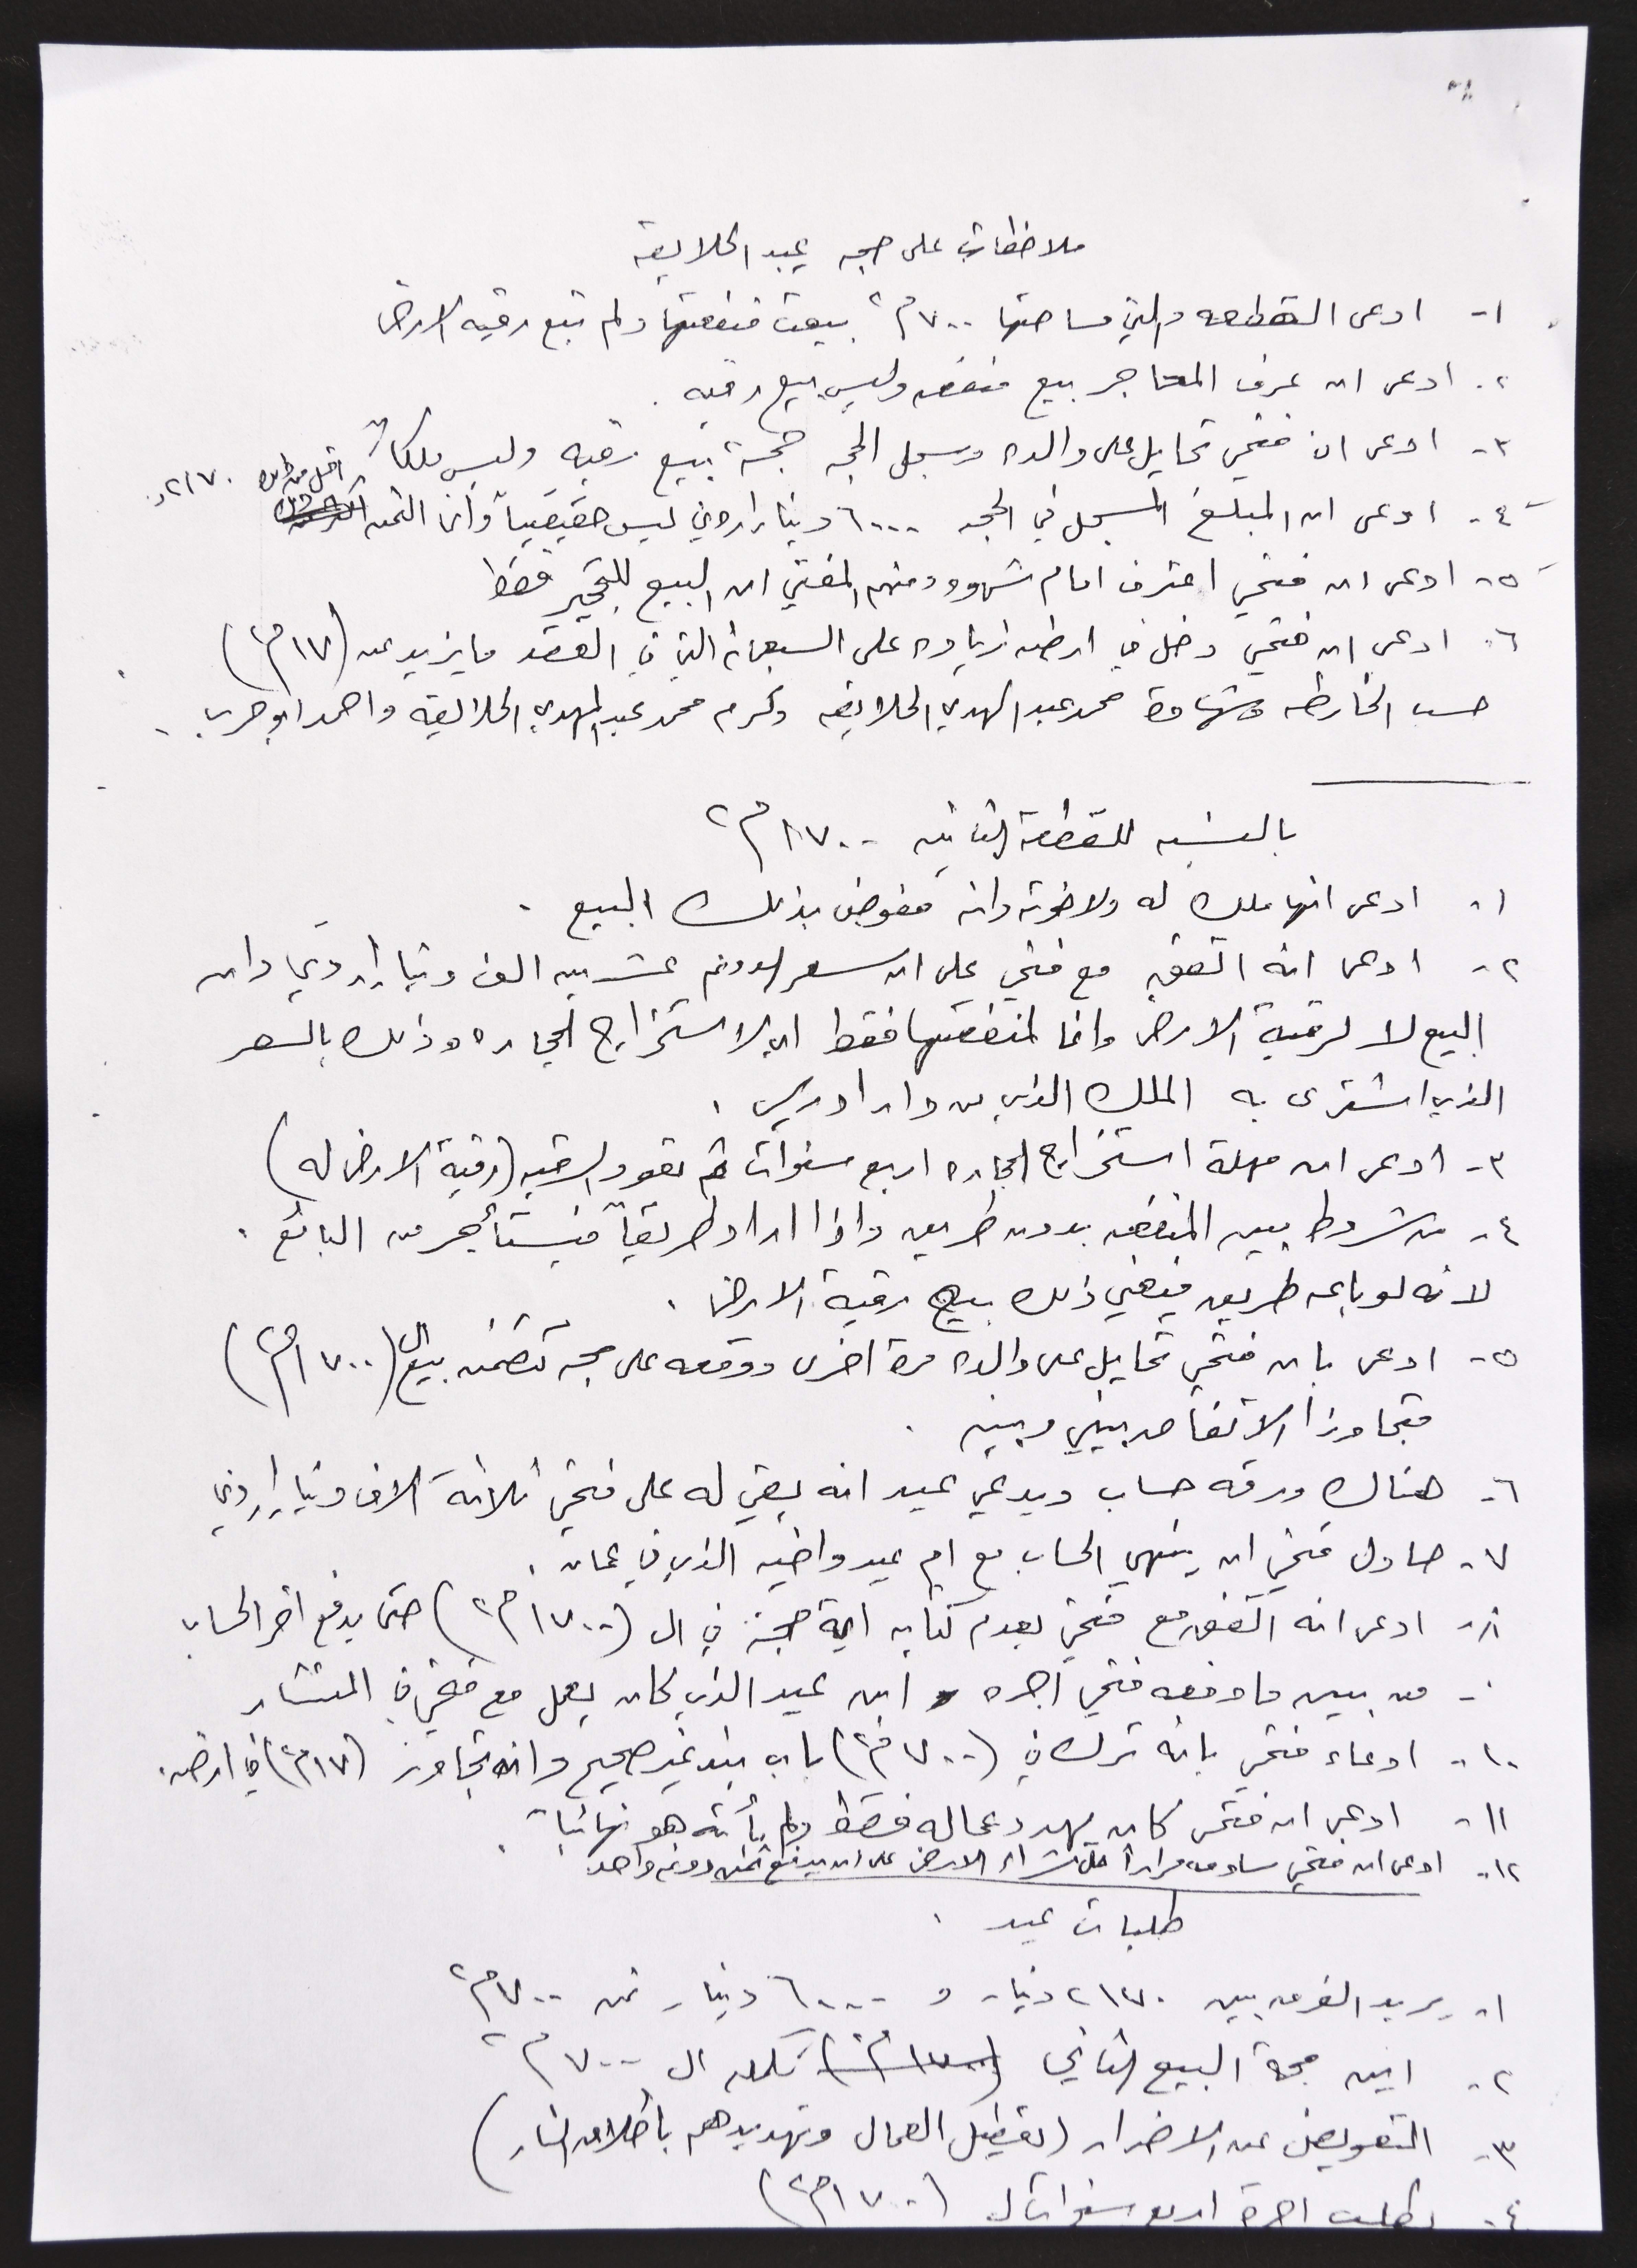 ملاحظات على حجه عيد الحلايقه
١- ادعى القطعه والتي مساحتها ٧٠٠م٢ بيعت منفعتها ولم تبع رقبه الارض
٢- ادعى ان عرف المحاجر بيع منفعه وليس بيع رقبه .
٣- ادعى ان فتحي تحايل على والده وسجل الحجه حجة بيع رقبه وليس ملكاً
٤- ادعى ان المبلغ المسجل في الحجه ٦٠٠٠ دينار اردني ليس حقيقياً وأن الثمن اقل من ذلك ٢١٧٠د.
٥- ادعى ان فتحي اعترف امام شهود ومنهم المفتي ان البيع للتحجير فقط
٦- ادعى ان فتحي دخل في ارضه زياده على السبعمائه التي في العقد ما يزيد عن (١٧م٢)
حسب الخارطه وشهادة محمد عبد المهدي الحلايقه وكرم محمد عبد المهدي الحلايقه واحمد ابو حرب .
بالنسبه للقطعة الثانيه ١٧٠٠م٢
١- ادعى انها ملك له ولاخوته وانه مفوض بذلك البيع .
٢- ادعى انه اتفق مع فتحي على ان سعر الدونم عشرين الف دينار اردني وان
البيع لا لرقبة الارض وانما لمنفعتها فقط اي لاستخراج الحجاره وذلك بالسعر
الذي اشترى به الملك الذي من دار ادريس .
٣- ادعى ان مهلة استخراج الحجاره اربع سنوات ثم تعود الرقبه (رقبة الارض له)
٤- من شروط بيع المنفعه بدون طريق واذا اراد طريقاً فيستأجر من البائع .
لانه لو باعه طريق فيعني ذلك بيع رقبة الارض .
٥- ادعى بان فتحي تحايل على والده مرة اخرى ووقعه على حجه تتضمن بيع ال (١٧٠٠م٢)
متجاوزا الاتفاق بيني وبينه .
٦- هناك ورقه حساب ويدعي عيد انه بقي له على فتحي ثلاثة الاف دينار اردني
٧- حاول فتحي ان ينهي الحساب مع ام عيد واخيه الذي في عمان .
٨- ادعى انه اتفق مع فتحي بعدم كتابه اية حجة في ال (١٧٠٠م٢) حتى يدفع اخر الحساب
٠- من بين ما دفعه فتحي اجره ابن عيد الذي كان يعمل مع فتحي في المنشار
١٠- ادعاء فتحي بانه ترك في (٧٠٠م٢) باب بند غير صحيح وانه تجاوز (١٧م٢) في ارضه.
١١- ادعى ان فتحي كان يهدد عماله فقط ولم يأته هو نهائياً .
١٢- ادعى ان فتحي ساومه مراراً على شراء الارض على ان يدفع ثمن دونم واحد
طلبات عيد .
١- يريد الفرق بين ٢١٧٠ دينار و ٦٠٠٠ دينار ثمن ٧٠٠م٢
٢- اين حجة البيع الثاني (١٧٠٠م٢) تكمله ال ٧٠٠م٢
٣- التعويض عن الاضرار (تعطيل العمال وتهديدهم باطلاق النار)
٤- يطلب اجرة اربع سنوات ل (١٧٠٠م٢)